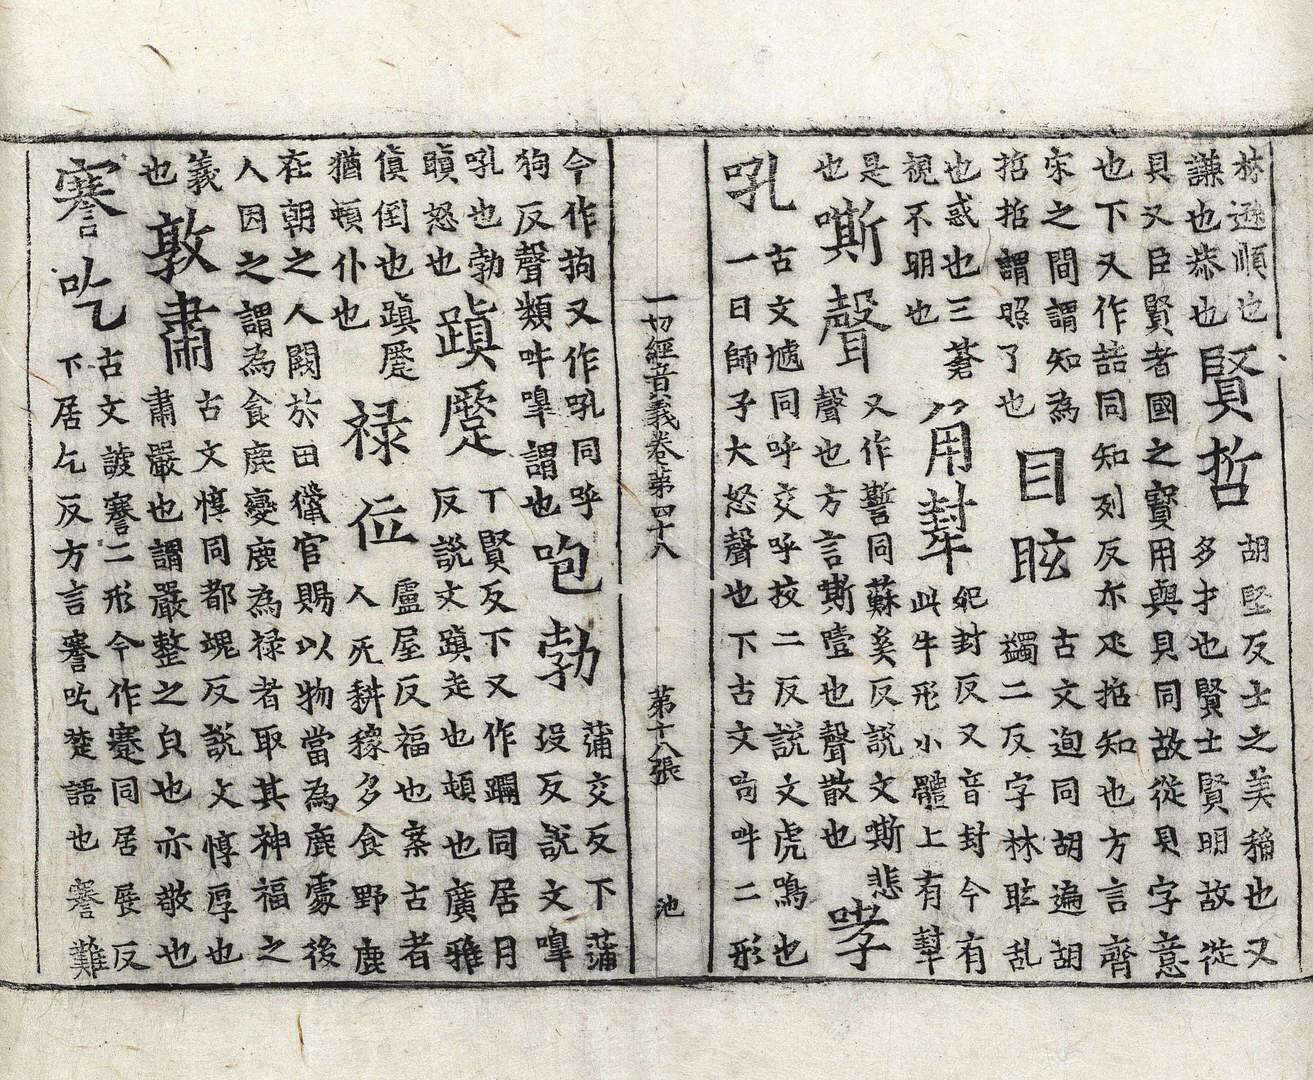 遜順也謙也恭也賢哲胡堅反士之美稱也又多才也賢士賢明故從
貝又臣賢者國之寶用與貝同故從貝字意也下又作喆同知列反尒疋哲知也方言齊
宋之間謂知為哲哲謂照了也目眩古文迿同胡遍胡蠲二反字林眩乱
也惑也三蒼視不明也角犎妃封反又音封今有此牛形小髆上有犎
是也嘶聲又作同蘇奚反說文嘶悲聲也方言嘶噎也聲散也哮
吼古文同呼交呼挍二反說文虎鳴也一曰師子大怒聲也下古文呴吽二形
一切經音義卷第四十八 第十八張 池
今作拘又作吼同呼狗反聲類吽嘷謂也咆勃蒲交反下蒲沒反說文嘷
吼也勃瞋怒也蹎蹷丁賢反下又作同居月反說文蹎走也頓也廣雅
傎倒也蹎蹷猶頓仆也祿位盧屋反福也案古者人旡耕稼多食野鹿
在朝之人闕於田獵官賜以物當為鹿處後人因之謂為食鹿變鹿為祿者取其神福之
義也敦肅古文惇同都魂反說文惇厚也肅嚴也謂嚴整之皃也亦敬也
謇吃古文謇二形今作蹇同居展反下居乞反方言謇吃楚語也謇難